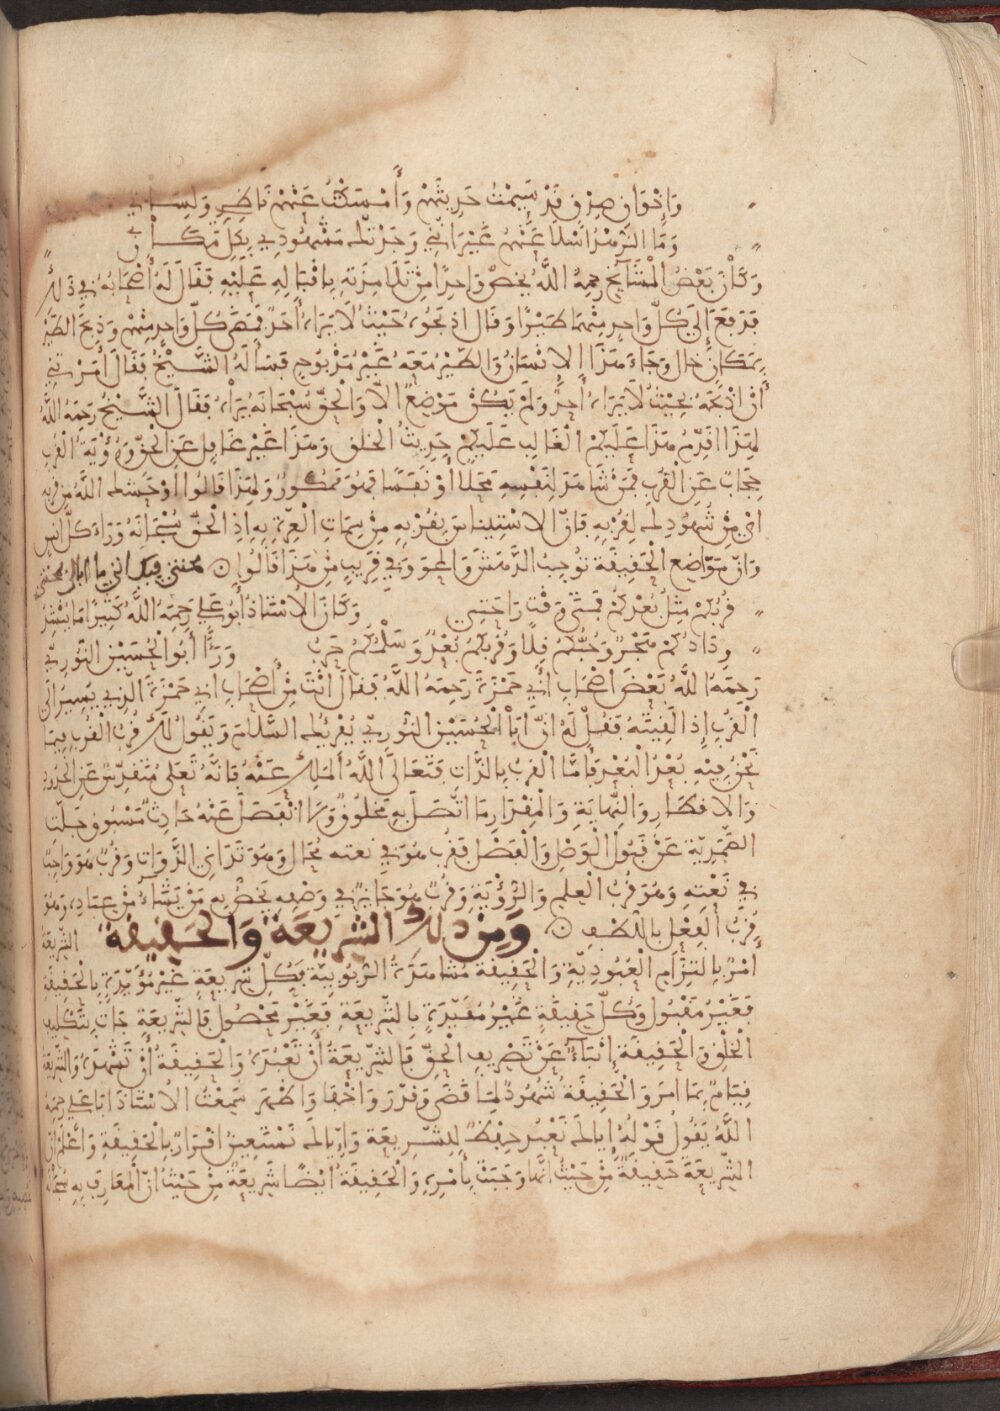 وَإِخْوَانِ صِدْقٍ قَدْ سَئِمْتُ حَدِيثَهُمْ وَأَمْسَكْتُ عَنْهُمْ نَاظِرِي وَلِسَانِي
وَمَا الزُّهْدُ أَسْلَا عَنْهُمُ غَيْرَ أَنَّنِي وَجَدْتُكَ مَشْهُودِي بِكُلِّ مَكَانِي
وَكَانَ بَعْضُ الْمَشَايِخِ رَحِمَهُ اللَّهُ يَخُصُّ وَاحِدًا مِنْ تَلَامِذَتِهِ بِإِقْبَالِهِ عَلَيْهِ فَقَالَ لَهُ أَصْحَابُهُ فِي ذَلِكَ
فَدَفَعَ إِلَى كُلِّ وَاحِدٍ مِنْهُمْ طَيْرًا وَقَالَ اذْبَحُوهُ حَيْثُ لَا يَرَاهُ أَحَدٌ فَمَضَى كُلُّ وَاحِدٍ مِنْهُمْ وَذَبَحَ الطَّيْرَ
بِمَكَانٍ خَالٍ وَجَاءَ هَذَا الْإِنْسَانُ وَالطَّيْرُ مَعَهُ غَيْرُ مَذْبُوحٍ فَسَأَلَهُ الشَّيْخُ فَقَالَ أَمَرْتَنِي
أَنْ أَذْبَحَهُ بِحَيْثُ لَا يَرَاهُ أَحَدٌ وَلَمْ يَكُنْ مَوْضِعٌ إِلَّا وَالْحَقُّ سُبْحَانَهُ يَرَاهُ فَقَالَ الشَّيْخُ رَحِمَهُ اللَّهُ
لِهَذَا أُقَدِّمُ هَذَا عَلَيْكُمْ الْغَالِبُ عَلَيْكُمْ حَدِيثُ الْخَلْقِ وَهَذَا غَيْرُ غَافِلٍ عَنِ الْحَقِّ وَرُؤْيَةُ الْقُرْبِ
حِجَابٌ عَنِ الْقُرْبِ فَمَنْ شَاهَدَ لِنَفْسِهِ مَحَلًّا أَوْ نَفَسًا فَهُوَ مَمْكُورٌ وَلِهَذَا قَالُوا أَوْحَشَكَ اللَّهُ مِنْ قُرْبِهِ
أَيْ مِنْ شُهُودِكَ لِقُرْبِهِ فَإِنَّ الِاسْتِينَاسَ بِقُرْبِهِ مِنْ سِمَاتِ الْعِزَّةِ بِهِ إِذِ الْحَقُّ سُبْحَانَهُ وَرَاءَ كُلِّ أُنْسٍ
وَإِنَّ مَوَاضِعَ الْحَقِيقَةِ تُوجِبُ الدَّهَشَ وَالْمَحْوَ وَفِي قَرِيبٍ مِنْ هَذَا قَالُوا محنتي فيك أنني ما أبالي بمحنتي
قُرْبُكُمْ مِثْلُ بُعْدِكُمْ فَمَتَى وَقْتُ رَاحَتِي وَكَانَ الْأُسْتَاذُ أَبُو عَلِي رَحِمَهُ اللَّهُ كَثِيرًا مَا يُنْشِدُ
وِدَادُكُمْ هَجْرٌ وَحُبُّكُمْ قِلًا وَقُرْبُكُمْ بُعْدٌ وَسِلْمُكُمُ حَرْبُ وَرَأَى أَبُو الْحُسَيْنِ النُّورِيُّ
رَحِمَهُ اللَّهُ بَعْضَ أَصْحَابِ أَبِي حَمْزَةَ رَحِمَهُ اللَّهُ فَقَالَ أَنْتَ مِنْ أَصْحَابِ أَبِي حَمْزَةَ الَّذِي يُشِيرُ إِلَى
الْقُرْبِ إِذَا لَقِيتَهُ فَقُلْ لَهُ إِنَّ أَبَا الْحُسَيْنِ النُّورِيَّ يُقْرِيكَ السَّلَامَ وَيَقُولُ لَكَ قُرْبُ الْقُرْبِ فِيمَا
نَحْنُ فِيهِ بُعْدُ الْبُعْدِ فَأَمَّا الْقُرْبُ بِالذَّاتِ فَتَعَالَى اللَّهُ الْمَلِكُ عَنْهُ فَإِنَّهُ تَعَلَى مُتَقَدِّسٌ عَنِ الْحُدُودِ
وَالْأَقْطَارِ وَالنِّهَايَةِ وَالْمِقْدَارِ مَا اتَّصَلَ بِهِ مَخْلُوقٌ وَلَا انْفَصَلَ عَنْهُ حَادِثٌ مَسْبُوقٌ جَلَّتِ
الصَّمَدِيَّةُ عَنْ قَبُولِ الْوَصْلِ وَالْفَصْلِ فَقُرْبٌ هُوَ فِي نعته مُحَالٌ وَهُوَ تَدَانِي الذَّوَاتِ وَقُرْبٌ هُوَ وَاجِبٌ
فِي نَعْتِهِ وَهُوَ قُرْبُ الْعِلْمِ وَالرُّؤْيَةِ وَقُرْبٌ هُوَ جَائِزٌ فِي وَصْفِهِ يَخُصُّ بِهِ مَنْ يَشَاءُ مِنْ عِبَادِهِ وَهُوَ
قُرْبُ الْفِعْلِ بِاللُّطْفِ وَمِنْ ذَلِكَ الشَّرِيعَةُ وَالْحَقِيقَةُ الشَّرِيعَةُ
أَمْرٌ بِالْتِزَامِ الْعُبُودِيَّةِ وَالْحَقِيقَةُ مُشَاهَدَةُ الرُّبُوبِيَّةِ فَكُلُّ شَرِيعَةٍ غَيْرُ مُؤَيَّدَةٍ بِالْحَقِيقَةِ
فَغَيْرُ مَقْبُولٍ وَكُلُّ حَقِيقَةٍ غَيْرُ مُقَيَّدَةٍ بِالشَّرِيعَةِ فَغَيْرُ مَحْصُولٍ فَالشَّرِيعَةُ جَاءَتْ بِتَكْلِيفِ
الْخَلْقِ وَالْحَقِيقَةُ إِنْبَاءٌ عَنْ تَصْرِيفِ الْحَقِّ فَالشَّرِيعَةُ أَنْ تَعْبُدَهُ وَالْحَقِيقَةُ أَنْ تَشْهَدَهُ وَالشَّرِيعَةُ
قِيَامٌ بِمَا أَمَرَ وَالْحَقِيقَةُ شُهُودٌ لِمَا قَضَى وَقَدَّرَ وَأَخْفَا وَأَظْهَرَ سَمِعْتُ الْأُسْتَاذَ أَبَا عَلِي رَحِمَهُ
اللَّهُ يَقُولُ قَوْلُهُ إِيَّاكَ نَعْبُدُ حِفْظٌ لِلشَّرِيعَةِ وَإِيَّاكَ نَسْتَعِينُ إِقْرَارٌ بِالْحَقِيقَةِ وَاعْلَمْ أَنَّ
الشَّرِيعَةَ حَقِيقَةٌ مِنْ حَيْثُ أَنَّهَا وَجَبَتْ بِأَمْرِهِ وَالْحَقِيقَةُ أَيْضًا شَرِيعَةٌ مِنْ حَيْثُ أَنَّ الْمَعَارِفَ بِهِ سُبْحَانَهُ